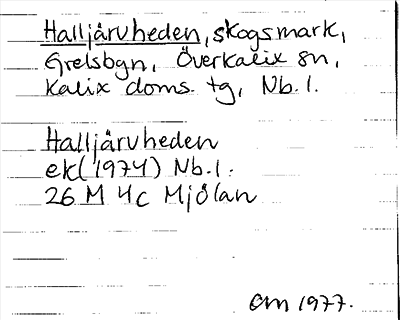 Halljärvheden, skogsmark,
Grelsbyn, Överkalix sn,
Kalix doms. tg, Nb. l.
Halljärvheden
ek (1974) Nb. l.
26 M 4c Mjölan
OM 1977.